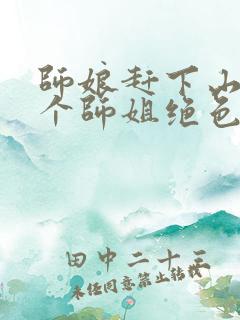 師娘赶下山
个師姐绝色
田中二十三
未经同意禁止转载